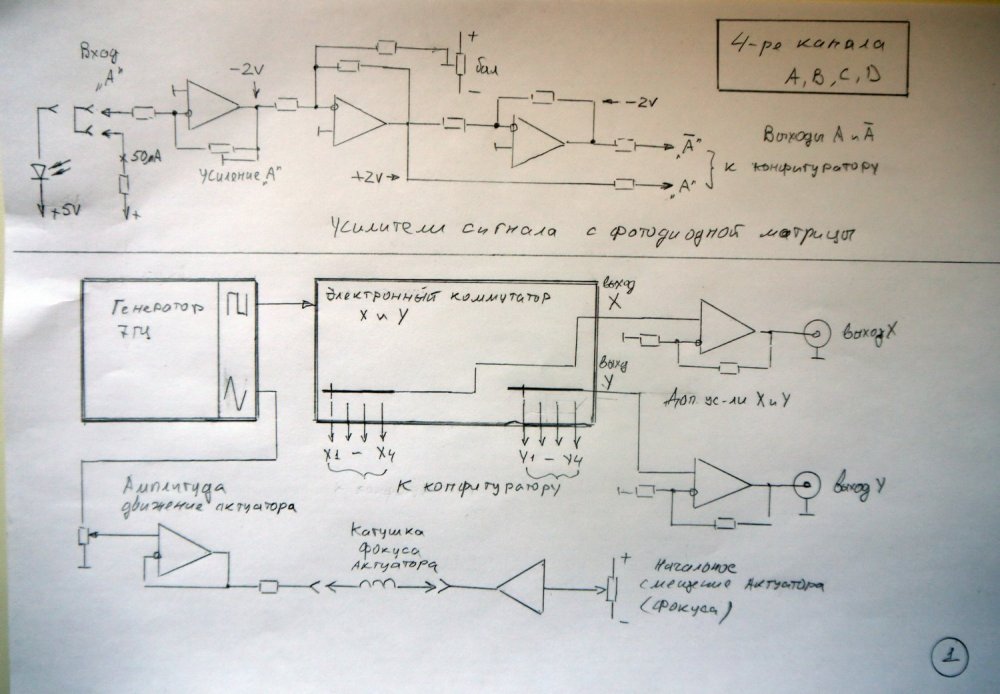 4-ре канала
А, В, С, D
Вход
„А“
-2v
+
бал
-
-2v
50μА
+5V
+
Усиление „А“
+2v
„Ā“
„А“
Выходы А и Ā
к конфигуратору
Усилители сигнала с фотодиодной матрицы
Генератор
7 Гц
Электронный коммутатор
X и Y
выход
X
выход
Y
выход X
Доп. ус-ли X и Y
X1 - X4
Y1 - Y4
К конфигуратору
выход Y
Амплитуда
движение актуатора
Катушка
фокуса
Актуатора
+
-
Начальное
смещение Актуатора
(фокуса)
1